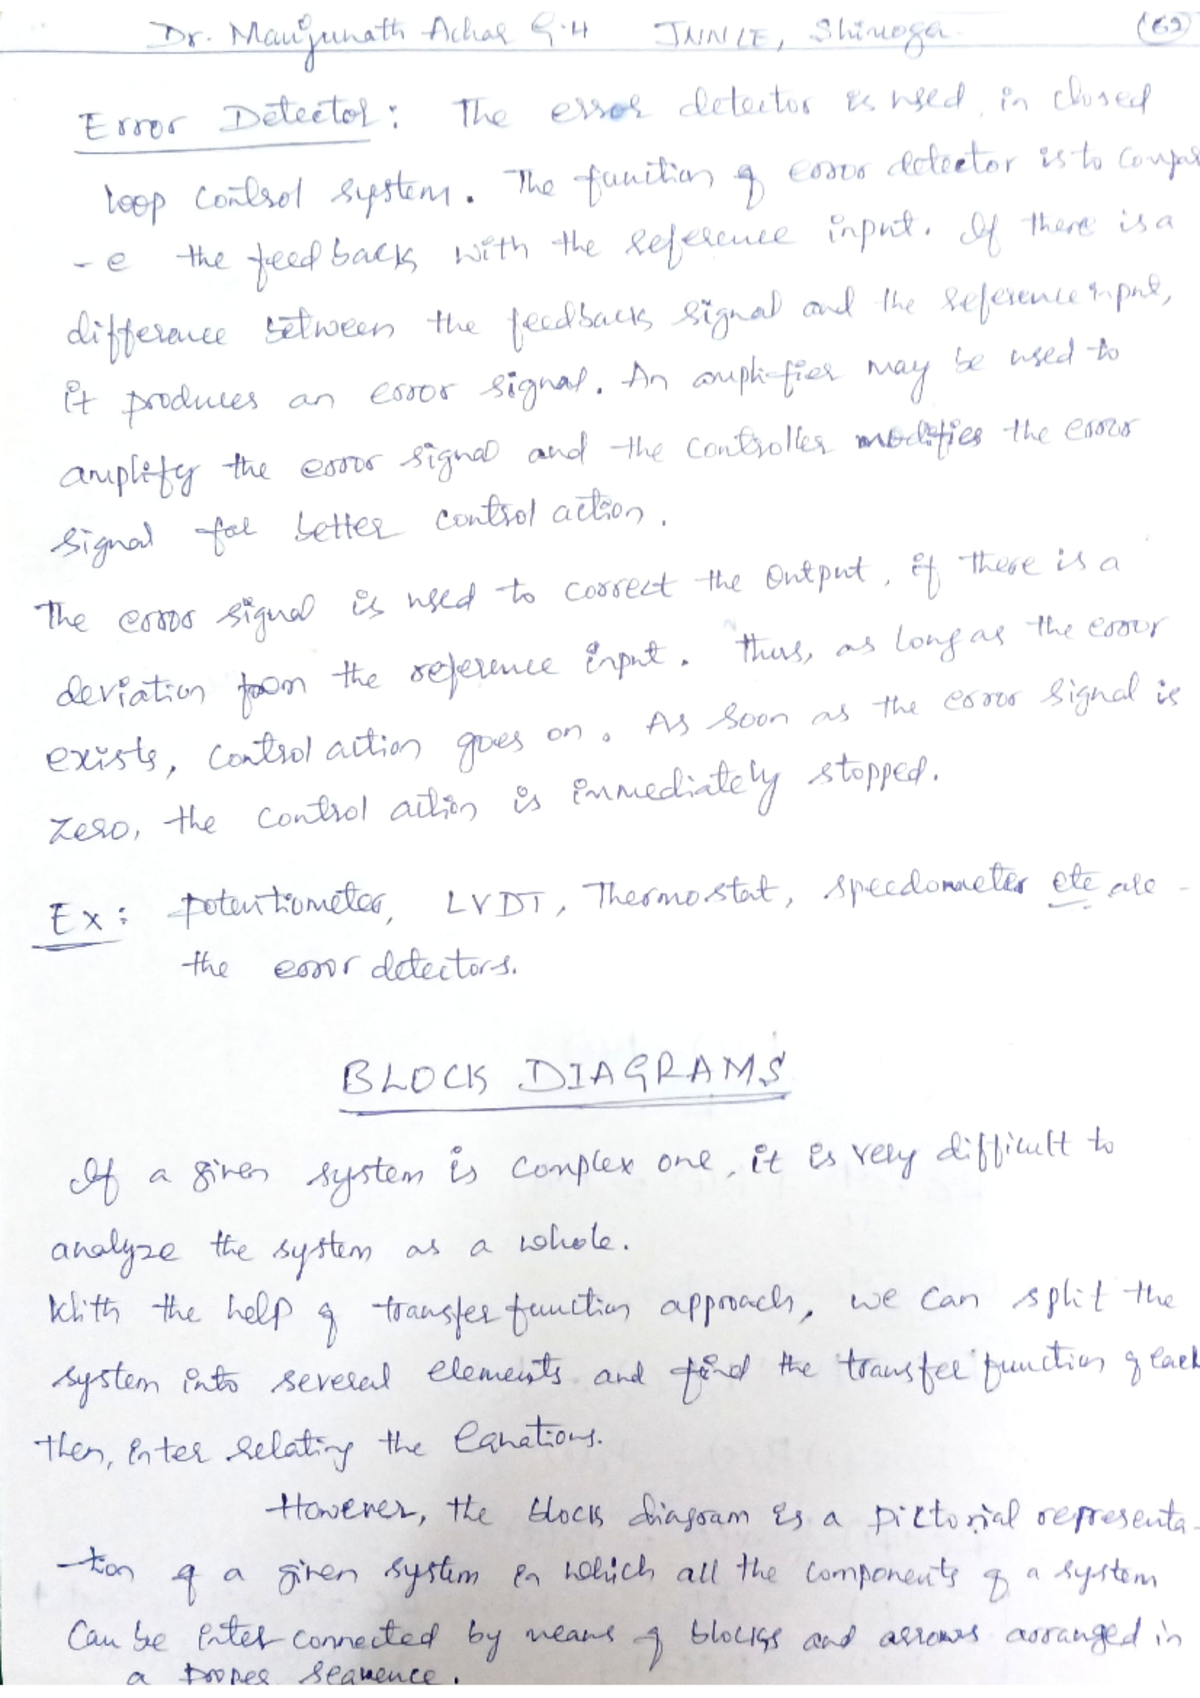 Dr. Manjunath Achar G.H JNNCE, Shimoga. (62)
Error Detector: The error detector is used in closed
loop control system. The function of error detector is to compar
- e the feedback with the reference input. If there is a
difference between the feedback signal and the reference input,
it produces an error signal. An amplifier may be used to
amplify the error signal and the controller modifies the error
signal for better control action.
The error signal is used to correct the output, if there is a
deviation from the reference input. Thus, as long as the error
exists, control action goes on. As soon as the error signal is
zero, the control action is immediately stopped.
Ex: potentiometer, LVDT, Thermostat, speedometer etc are -
the error detectors.
BLOCK DIAGRAMS
If a given system is complex one, it is very difficult to
analyze the system as a whole.
With the help of transfer function approach, we can split the
system into several elements and find the transfer function of each
then, inter relating the Equations.
However, the block diagram is a pictorial representa-
-tion of a given system in which all the components of a system
Can be inter connected by means of blocks and arrows arranged in
a proper sequence.